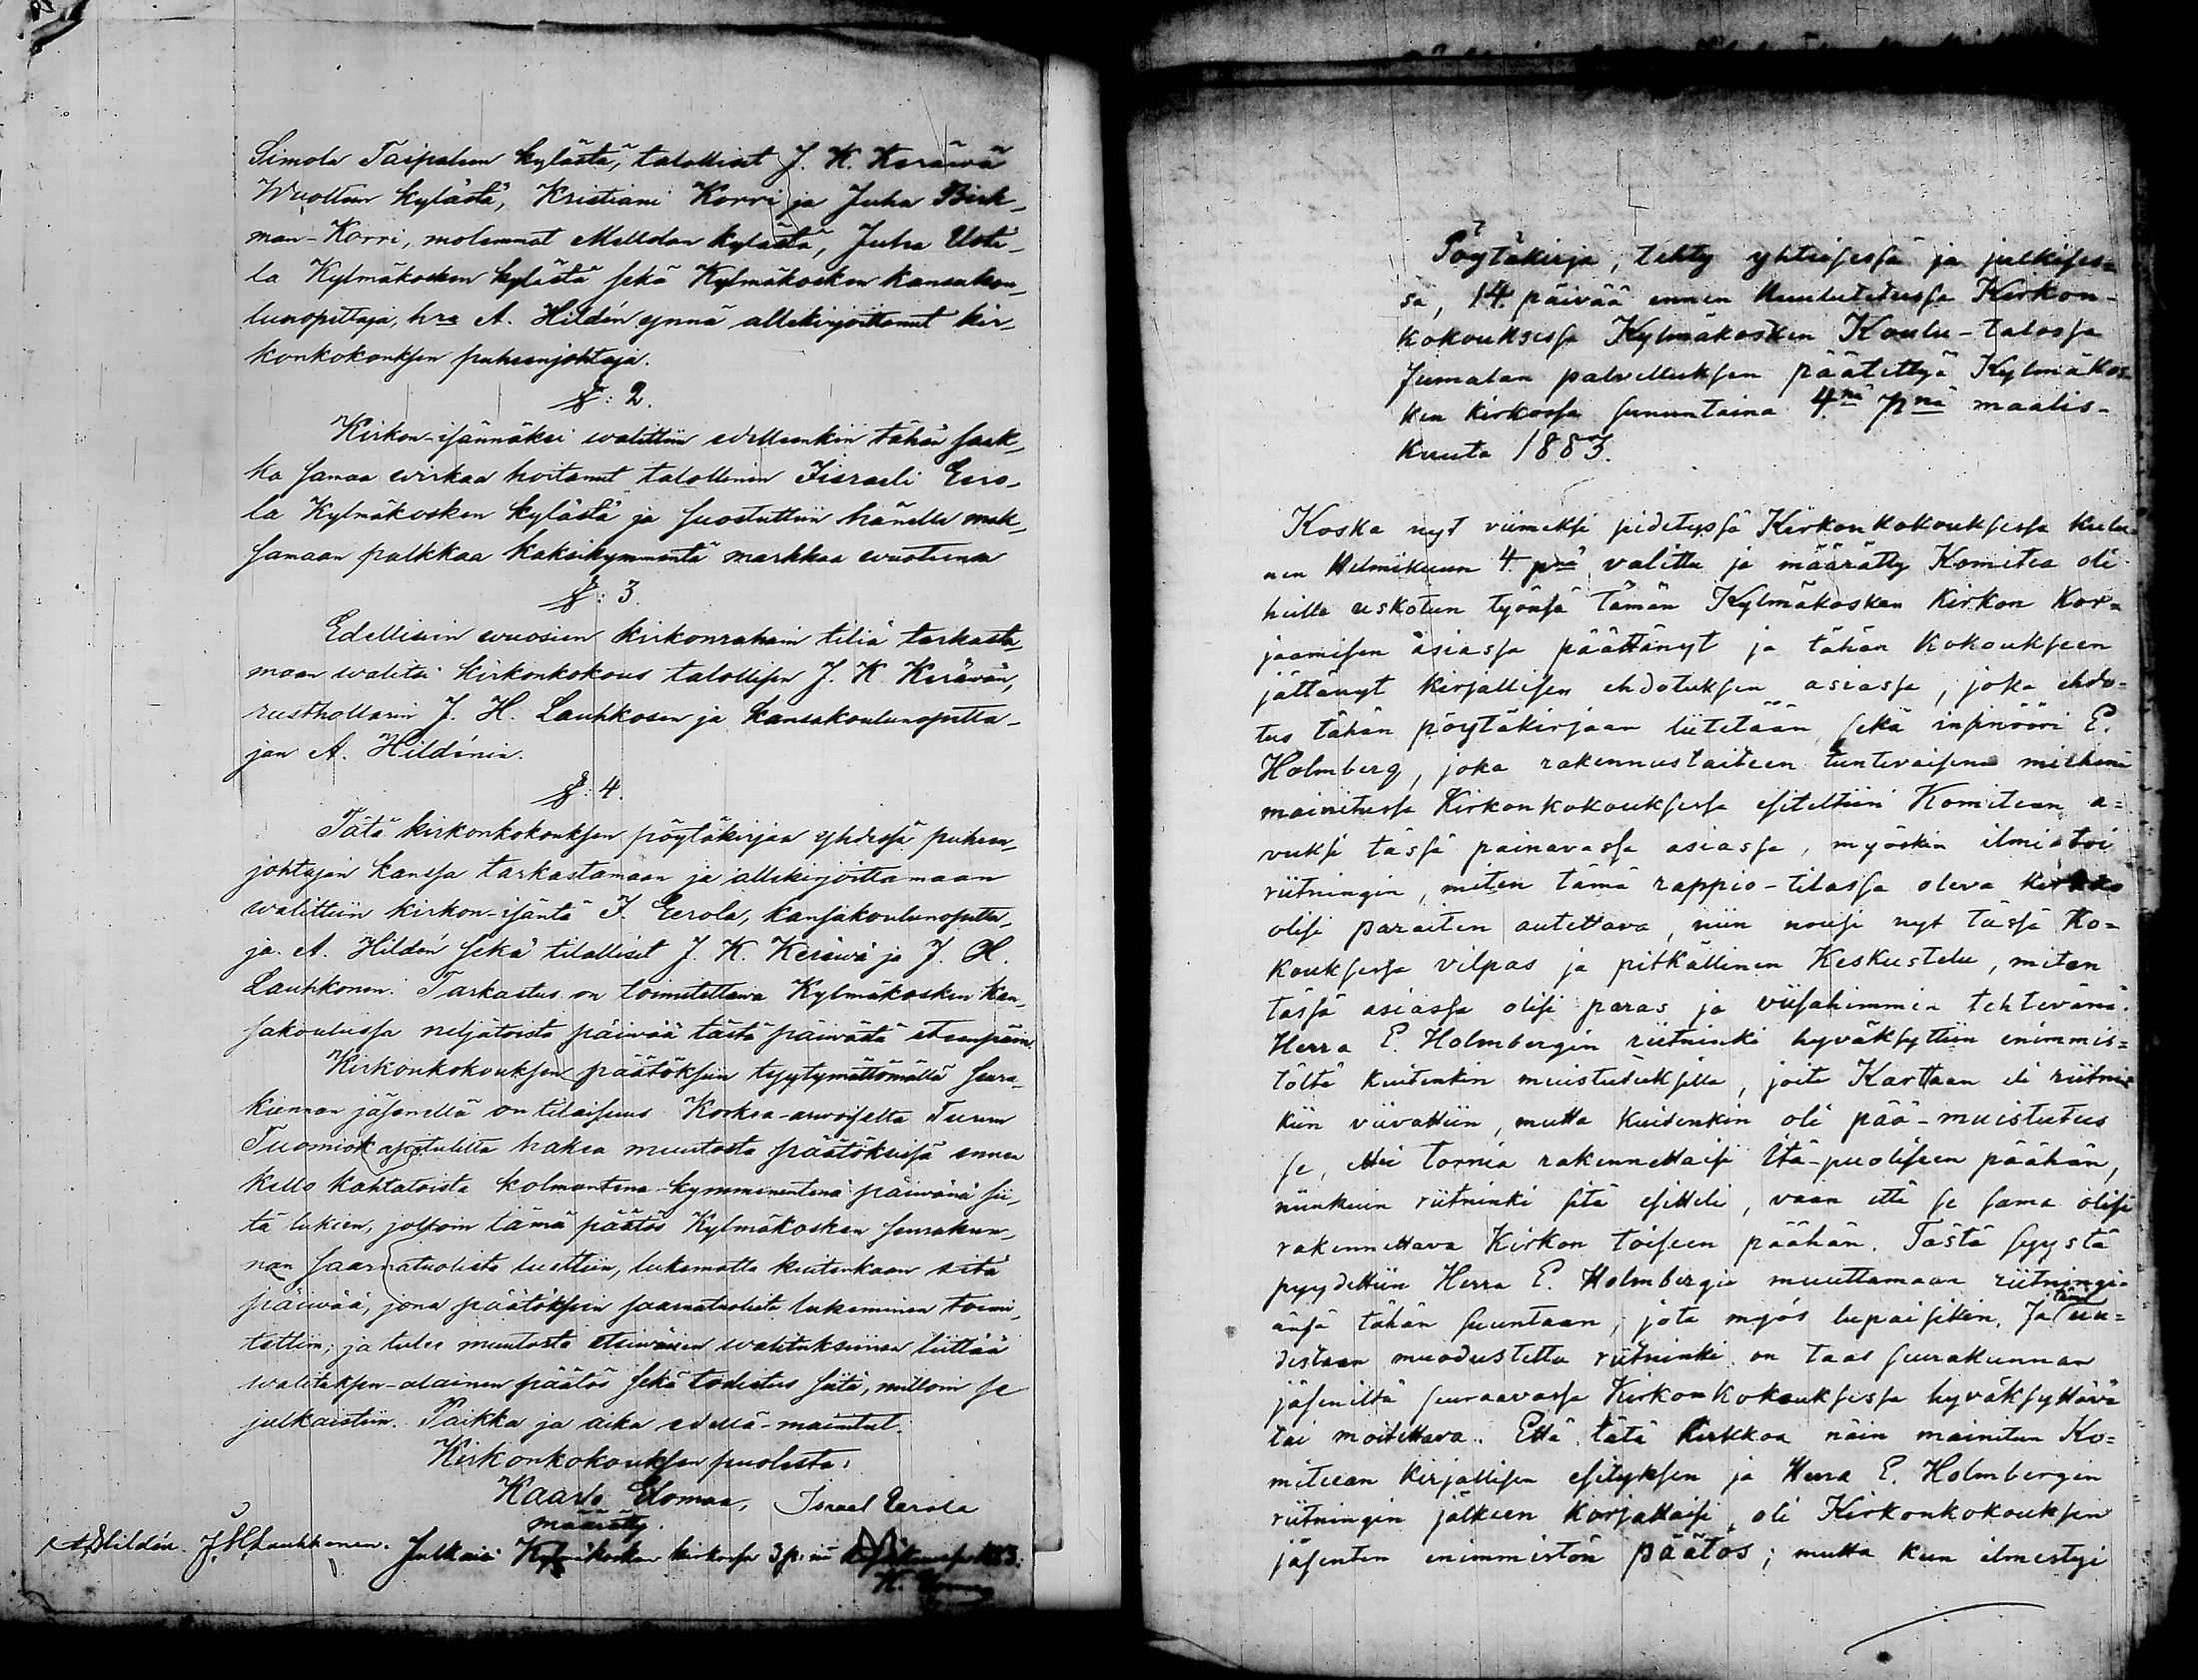 Simola Taipaleen kylästä, talolliset J. K. Keräwä
Wuolteen kylästä, Kristiani Korri ja Juha Birk-
man-Korri, molemmat Mellolan kylästä, Juha Uoti-
la Kylmäkosken kylästä sekä Kylmäkosken kansakou-
lunopettaja, hra A. Hildén ynnä allekirjoittanut kir-
konkokouksen puheenjohtaja.
§: 2.
Kirkon-isännäksi walittiin edelleenkin tähän saak-
ka samaa wirkaa hoitanut talollinen Iisraeli Eero-
la Kylmäkosken kylästä ja suostuttiin hänelle mak-
samaan palkkaa kaksikymmentä markkaa wuoteensa
§: 3.
Edellisein wuosien kirkonrahain tiliä tarkasta-
maan walitsi kirkonkokous talollisen J. K. Keräwän,
rusthollarin J. H. Lauhkosen ja kansakoulunopetta-
jan A. Hildénin.
§: 4.
Tätä kirkonkokouksen pöytäkirjaa yhdessä puheen-
johtajan kanssa tarkastamaan ja allekirjoittamaan
walittiin kirkon-isäntä I. Eerola, kansakoulunopetta-
ja A. Hildén sekä tilalliset J. K. Keräwä ja J. H.
Lauhkonen. Tarkastus on toimitettawa Kylmäkosken kan-
sakoulussa neljätoista päiwää tästä päiwästä eteenpäin.
Kirkonkokouksen päätöksiin tyytymättömällä seura-
kunnan jäsenellä on tilaisuus Korkea-arwoiselta Turun
Tuomiokapitulilta hakea muutosta päätöksissä ennen
kello kahtatoista kolmantena kymmenentenä päiwänä sii-
tä lukien, jolloin tämä päätös Kylmäkosken seurakun-
nan saarnatuolista luettiin, lukematta kuitenkaan sitä
päiwää, jona päätöksien saarnatuolista lukeminen toimi-
tettiin; ja tulee muutosta etsiwäisen walitukseensa liittää
walituksen-alainen päätös sekä todistus siitä, milloin se
julkaistiin. Paikka ja aika edellä-mainitut.
Kirkonkokouksen puolesta:
Kaarlo Elomaa, Israel Eerola
määrätty.
A. Hildén. J. H. Lauhkonen. Julkaisi Kylmäkosken kirkossa 3 p:nä
Pöytäkirja, tehty yhteisessä ja julkises=
sa, 14 päivää ennen Kuulutetussa Kirkon-
kokouksessa Kylmäkosken Koulu-talossa
Jumalan palvelluksen päätettyä Kylmäkos-
ken kirkossa sunnuntaina 4nä pnä maalis-
kuuta 1883.
Koska nyt viimeksi pidetyssä Kirkonkokouksessa kulu-
nen Helmikuun 4 pnä valittu ja määrätty Komitea oli
heille uskotun työnsä tämän Kylmäkosken Kirkon Kor=
jaamisen asiassa päättänyt ja tähän Kokoukseen
jättänyt Kirjallisen ehdotuksen asiassa, joka ehdo=
tus tähän pöytäkirjaan liitetään sekä insinööri E.
Holmberg, joka rakennustaiteen tuntevaisena miehenä
mainitussa Kirkonkokouksessa esiteltiin Komitean a=
vuksi tässä painavassa asiassa, myöskin ilmi toi
riitningin, miten tämä rappio-tilassa oleva kirkko
olisi paraiten autettava, niin nousi nyt tässä Ko=
kouksessa vilpas ja pitkällinen Keskustelu, miten
tässä asiassa olisi paras ja viisahimmin tehtevänä.
Herra E. Holmbergin riitninki hyväksyttiin enimmis=
töltä Kuitenkin muistutuksilla, joita Karttaan eli riitnin=
kiin viivattiin, mutta Kuitenkin oli pää-muistutus
se, ettei tornia rakennettaisi Itä-puoliseen päähän,
niinkuin riitninki sitä esitteli, vaan että se sama olisi
rakennettava Kirkon toiseen päähän. Tästä syystä
pyydettiin Herra E. Holmbergia muuttamaan riitningi-
änsä tähän suuntaan, jota myös lupaisikin. Ja tämä uu=
distaan muodustettu riitninki on taas seurakunnan
jäseniltä seuraavassa Kirkonkokouksessa hyväksyttävä
tai moitittava. Että tätä Kirkkoa näin mainitun Ko=
mitean Kirjallisen esityksen ja Herra E. Holmbergin
riitningin jälkeen Korjattaisi, oli Kirkonkokouksen
jäsenten enimmistön päätös; mutta kun ilmestyi